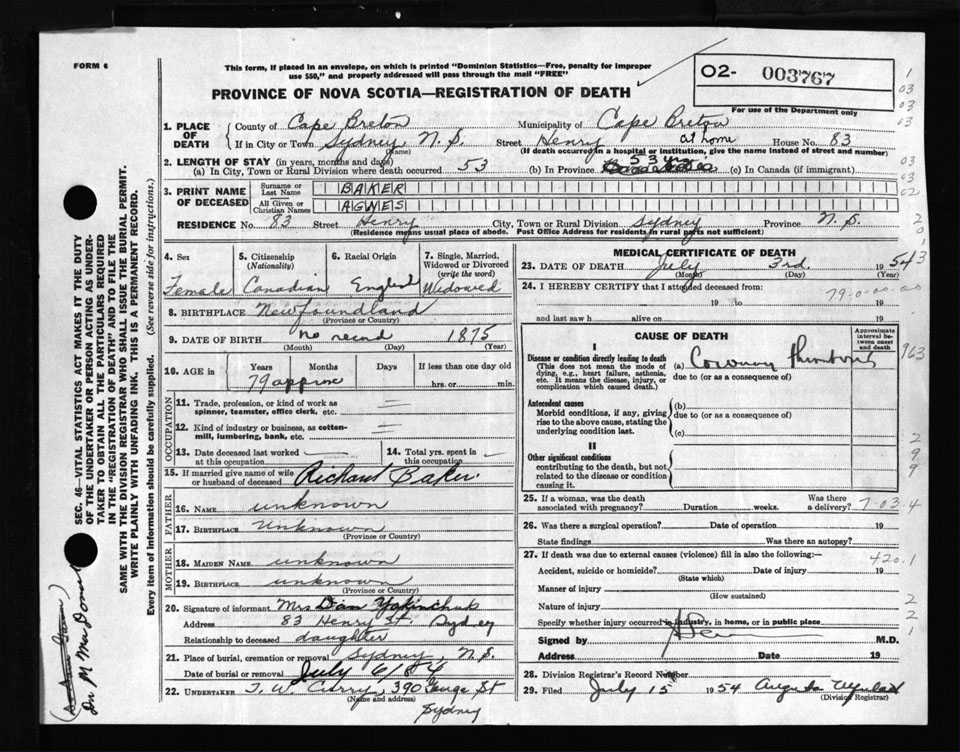 FORM 6
This form, if placed in an envelope, on which is printed "Dominion Statistics—Free, penalty for improper
use $50," and properly addressed will pass through the mail "FREE"
02- 003767
For use of the Department only
PROVINCE OF NOVA SCOTIA—REGISTRATION OF DEATH
1. PLACE OF DEATH
County of Cape Breton Municipality of Cape Breton
If in City or Town Sydney N.S. Street Henry at home House No. 83
(Name) (If death occurred in a hospital or institution, give the name instead of street and number)
2. LENGTH OF STAY (in years, months and days)
(a) In City, Town or Rural Division where death occurred 53 (b) In Province 53 yrs (c) In Canada (if immigrant)
3. PRINT NAME OF DECEASED
Surname or Last Name BAKER
All Given or Christian Names AGNES
RESIDENCE No. 83 Street Henry City, Town or Rural Division Sydney Province N.S.
(Residence means usual place of abode. Post Office Address for residents in rural parts not sufficient)
4. Sex Female
5. Citizenship (Nationality) Canadian
6. Racial Origin English
7. Single, Married, Widowed or Divorced (write the word) Widowed
8. BIRTHPLACE Newfoundland
(Province or Country)
9. DATE OF BIRTH no record 1875
(Month) (Day) (Year)
10. AGE in Years Months Days If less than one day old
79 approx hrs. or min.
OCCUPATION
11. Trade, profession, or kind of work as
spinner, teamster, office clerk, etc.
12. Kind of industry or business, as cotton-
mill, lumbering, bank, etc.
13. Date deceased last worked
at this occupation
14. Total yrs. spent in
this occupation
15. If married give name of wife
or husband of deceased Richard Baker
FATHER
16. NAME unknown
17. BIRTHPLACE Unknown
(Province or Country)
MOTHER
18. MAIDEN NAME unknown
19. BIRTHPLACE unknown
(Province or Country)
20. Signature of informant Mrs Dan Yakimchuk
Address 83 Henry St. Sydney
Relationship to deceased daughter
21. Place of burial, cremation or removal Sydney, N.S.
Date of burial or removal July 6/54
22. UNDERTAKER T. W. Curry, 390 George St
(Name and address)
Sydney
MEDICAL CERTIFICATE OF DEATH
23. DATE OF DEATH July 3rd. 1954
(Month) (Day) (Year)
24. I HEREBY CERTIFY that I attended deceased from:
19 to 19
and last saw h alive on 19
79-0-00-00
CAUSE OF DEATH
Approximate interval between onset and death
I
Disease or condition directly leading to death
(This does not mean the mode of
dying, e.g., heart failure, asthenia,
etc. It means the disease, injury, or
complication which caused death.)
(a) Coronary Thrombosis
due to (or as a consequence of)
Antecedent causes
Morbid conditions, if any, giving
rise to the above cause, stating the
underlying condition last.
(b)
due to (or as a consequence of)
(c)
II
Other significant conditions
contributing to the death, but not
related to the disease or condition
causing it.
25. If a woman, was the death
associated with pregnancy? Duration weeks. Was there
a delivery? 7-03-4
26. Was there a surgical operation? Date of operation 19
State findings Was there an autopsy?
27. If death was due to external causes (violence) fill in also the following:—
420.1
Accident, suicide or homicide? Date of injury 19
(State which)
Manner of injury
(How sustained)
Nature of injury
Specify whether injury occurred in industry, in home, or in public place
Signed by M.D.
Address Date 19
28. Division Registrar's Record Number
29. Filed July 15 1954
(Division Registrar)
SEC. 46—VITAL STATISTICS ACT MAKES IT THE DUTY
OF THE UNDERTAKER OR PERSON ACTING AS UNDER-
TAKER TO OBTAIN ALL THE PARTICULARS REQUIRED
IN THE "REGISTRATION OF DEATH" AND TO FILE THE
SAME WITH THE DIVISION REGISTRAR WHO SHALL ISSUE THE BURIAL PERMIT.
WRITE PLAINLY WITH UNFADING INK. THIS IS A PERMANENT RECORD.
Every item of information should be carefully supplied. (See reverse side for instructions.)